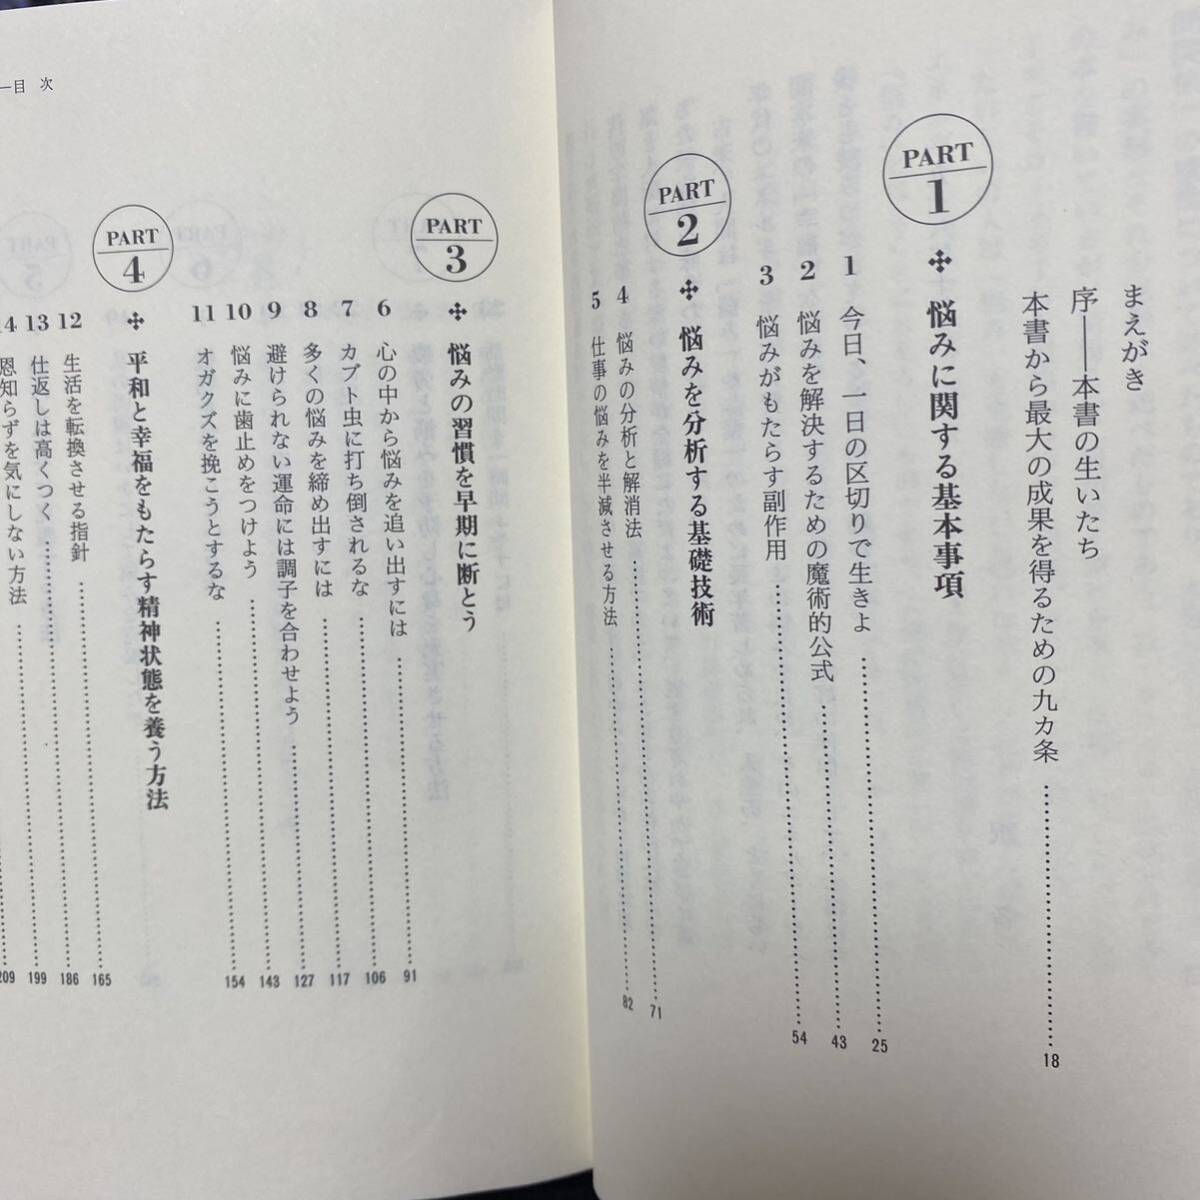 まえがき
序——本書の生いたち
本書から最大の成果を得るための九カ条……18
PART 1
悩みに関する基本事項
1 今日、一日の区切りで生きよ……25
2 悩みを解決するための魔術的公式……43
3 悩みがもたらす副作用……54
PART 2
悩みを分析する基礎技術
4 悩みの分析と解消法……71
5 仕事の悩みを半減させる方法……82
目 次
PART 3
悩みの習慣を早期に断とう
6 心の中から悩みを追い出すには……91
7 カブト虫に打ち倒されるな……106
8 多くの悩みを締め出すには……117
9 避けられない運命には調子を合わせよう……127
10 悩みに歯止めをつけよう……143
11 オガクズを挽こうとするな……154
PART 4
平和と幸福をもたらす精神状態を養う方法
12 生活を転換させる指針……165
13 仕返しは高くつく……186
14 恩知らずを気にしない方法……199
209